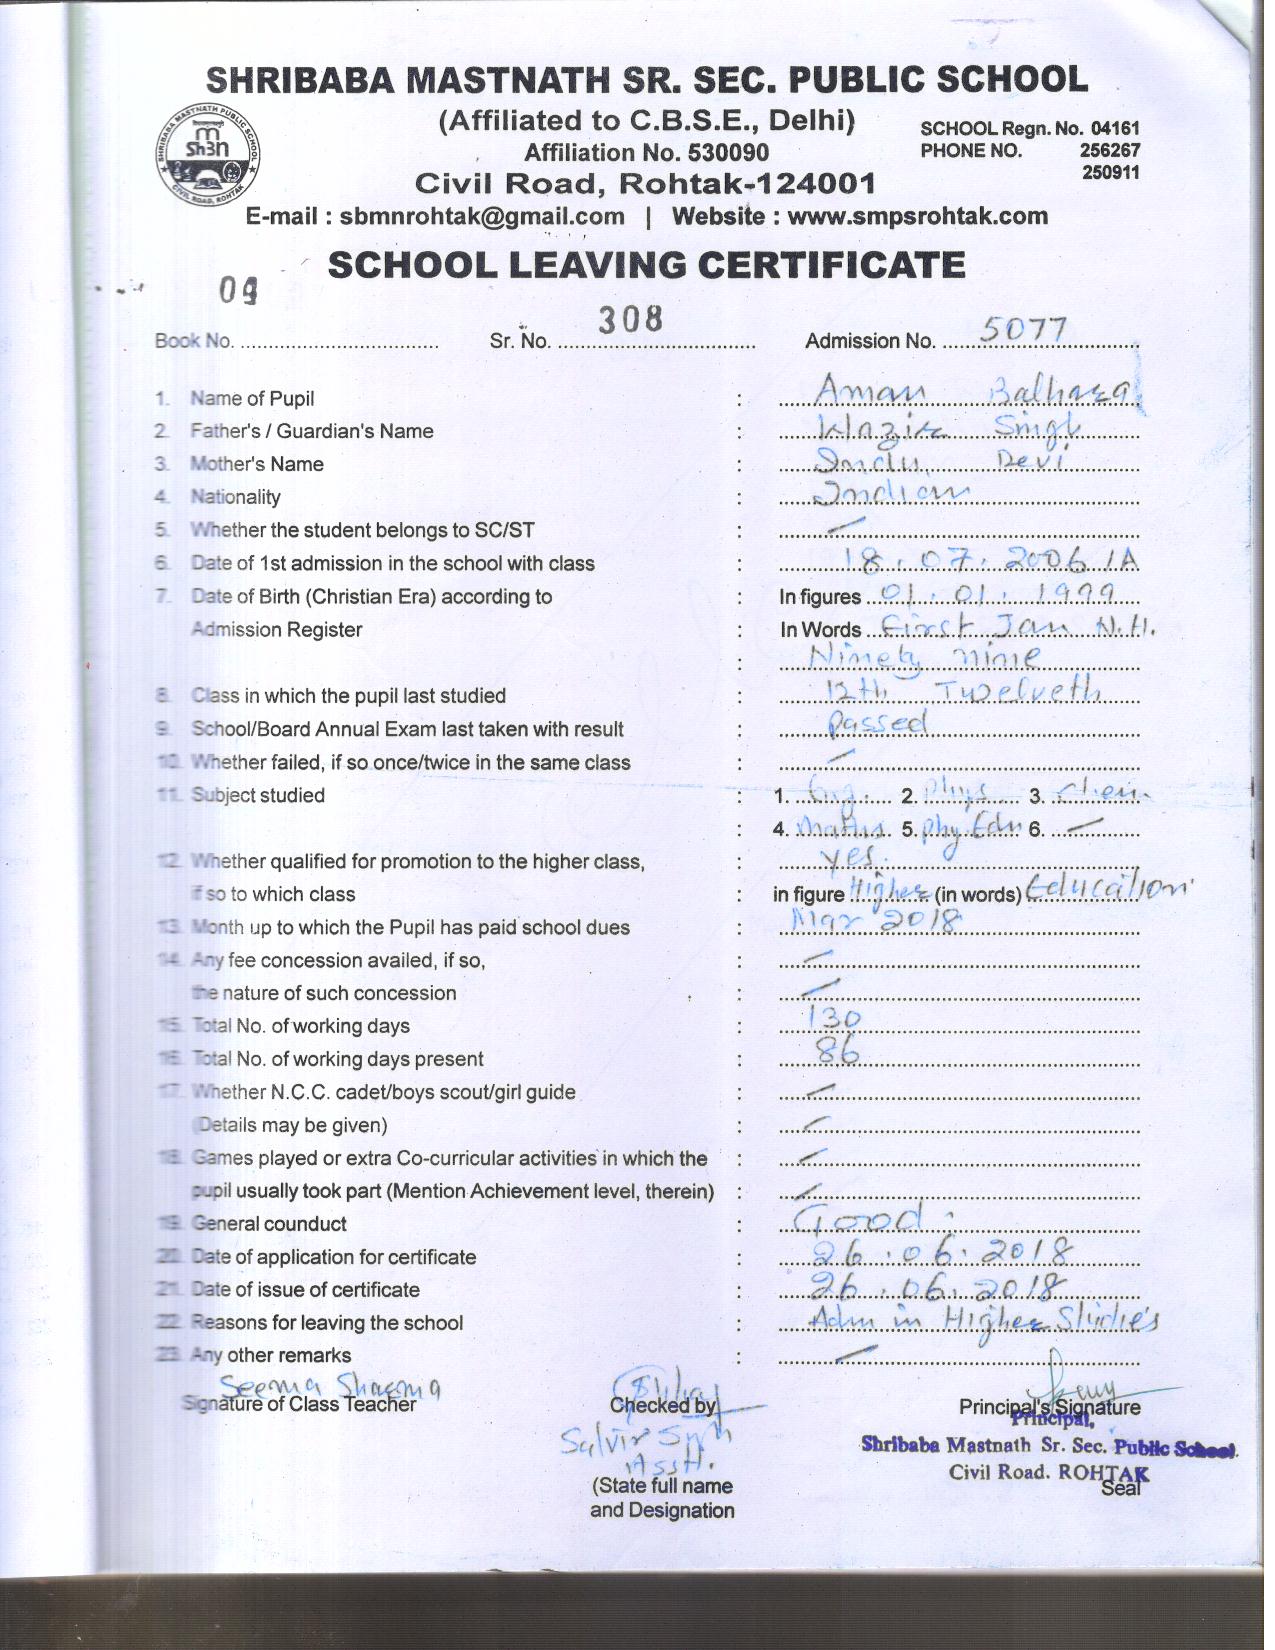 SHRIBABA MASTNATH SR. SEC. PUBLIC SCHOOL
(Affiliated to C.B.S.E., Delhi)
SCHOOL Regn. No. 04161
Affiliation No. 530090
PHONE NO. 256267
250911
Civil Road, Rohtak-124001
SHRIBABA MASTNATH PUBLIC SCHOOL
Sh3n
CIVIL ROAD, ROHTAK
E-mail : sbmnrohtak@gmail.com | Website : www.smpsrohtak.com
SCHOOL LEAVING CERTIFICATE
Book No. 09 Sr. No. 308 Admission No. 5077
1. Name of Pupil : Aman Balhara
2. Father's / Guardian's Name : Wazir Singh
3. Mother's Name : Indu Devi
4. Nationality : Indian
5. Whether the student belongs to SC/ST : —
6. Date of 1st admission in the school with class : 18.07.2006 1A
7. Date of Birth (Christian Era) according to : In figures 01.01.1999
Admission Register : In Words First Jan N.H.
: Ninety nine
8. Class in which the pupil last studied : 12th Twelveth
9. School/Board Annual Exam last taken with result : Passed
10. Whether failed, if so once/twice in the same class : —
11. Subject studied : 1. Eng. 2. Phys 3. Chem
: 4. Maths 5. Phy Edn 6. —
12. Whether qualified for promotion to the higher class, : yes.
if so to which class : in figure Higher (in words) Education
13. Month up to which the Pupil has paid school dues : Mar 2018
14. Any fee concession availed, if so, : —
the nature of such concession : —
15. Total No. of working days : 130
16. Total No. of working days present : 86
17. Whether N.C.C. cadet/boys scout/girl guide : —
Details may be given) : —
18. Games played or extra Co-curricular activities in which the : —
pupil usually took part (Mention Achievement level, therein) : —
19. General counduct : Good
20. Date of application for certificate : 26.06.2018
21. Date of issue of certificate : 26.06.2018
22. Reasons for leaving the school : Adm in Higher Studies
23. Any other remarks : —
Seema Sharma
Signature of Class Teacher Checked by Principal's Signature
Principal,
Shribaba Mastnath Sr. Sec. Public School
Civil Road. ROHTAK
Seal
Asstt.
(State full name
and Designation